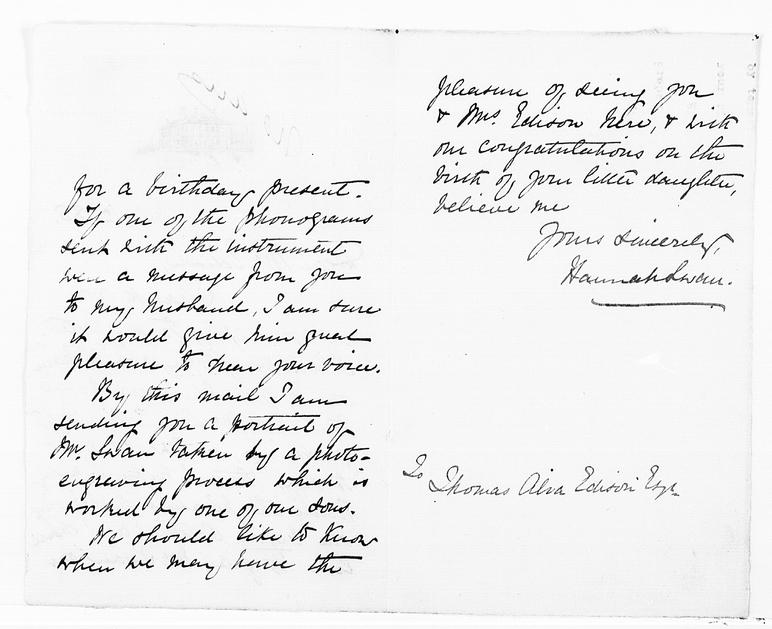 for a birthday present.
If one of the phonograms
sent with the instrument
were a message from you
to my husband, I am sure
it would give him great
pleasure to hear your voice.
By this mail I am
sending you a portrait of
Mr. Swan taken by a photo-
engraving process which is
worked by one of our sons.
We should like to know
when we may have the
pleasure of seeing you
& Mrs. Edison here, & with
our congratulations on the
birth of your little daughter,
believe me
Yours sincerely,
Hannah Swan.
To Thomas Alva Edison Esqr.